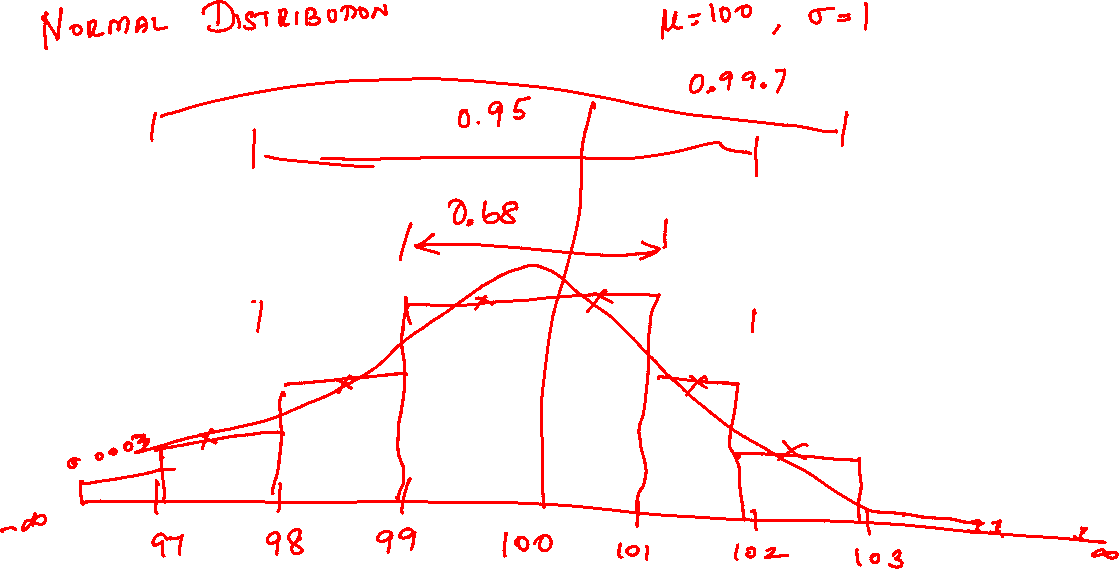 NORMAL DISTRIBUTION
μ=100, σ=1
0.99.7
0.95
0.68
-∞ 97 98 99 100 101 102 103 ∞